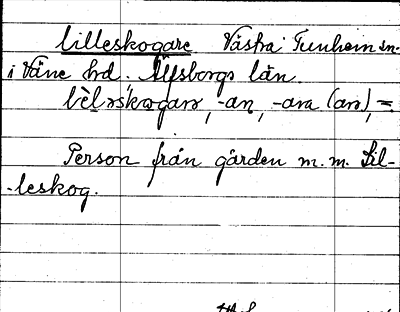 lilleskogare Västra Tunhem sn.
i Väne hd, Älfsborgs län
lìləskɷgarə, -an, -ara (arə), =
Person från gården m. m. Lil-
-leskog.